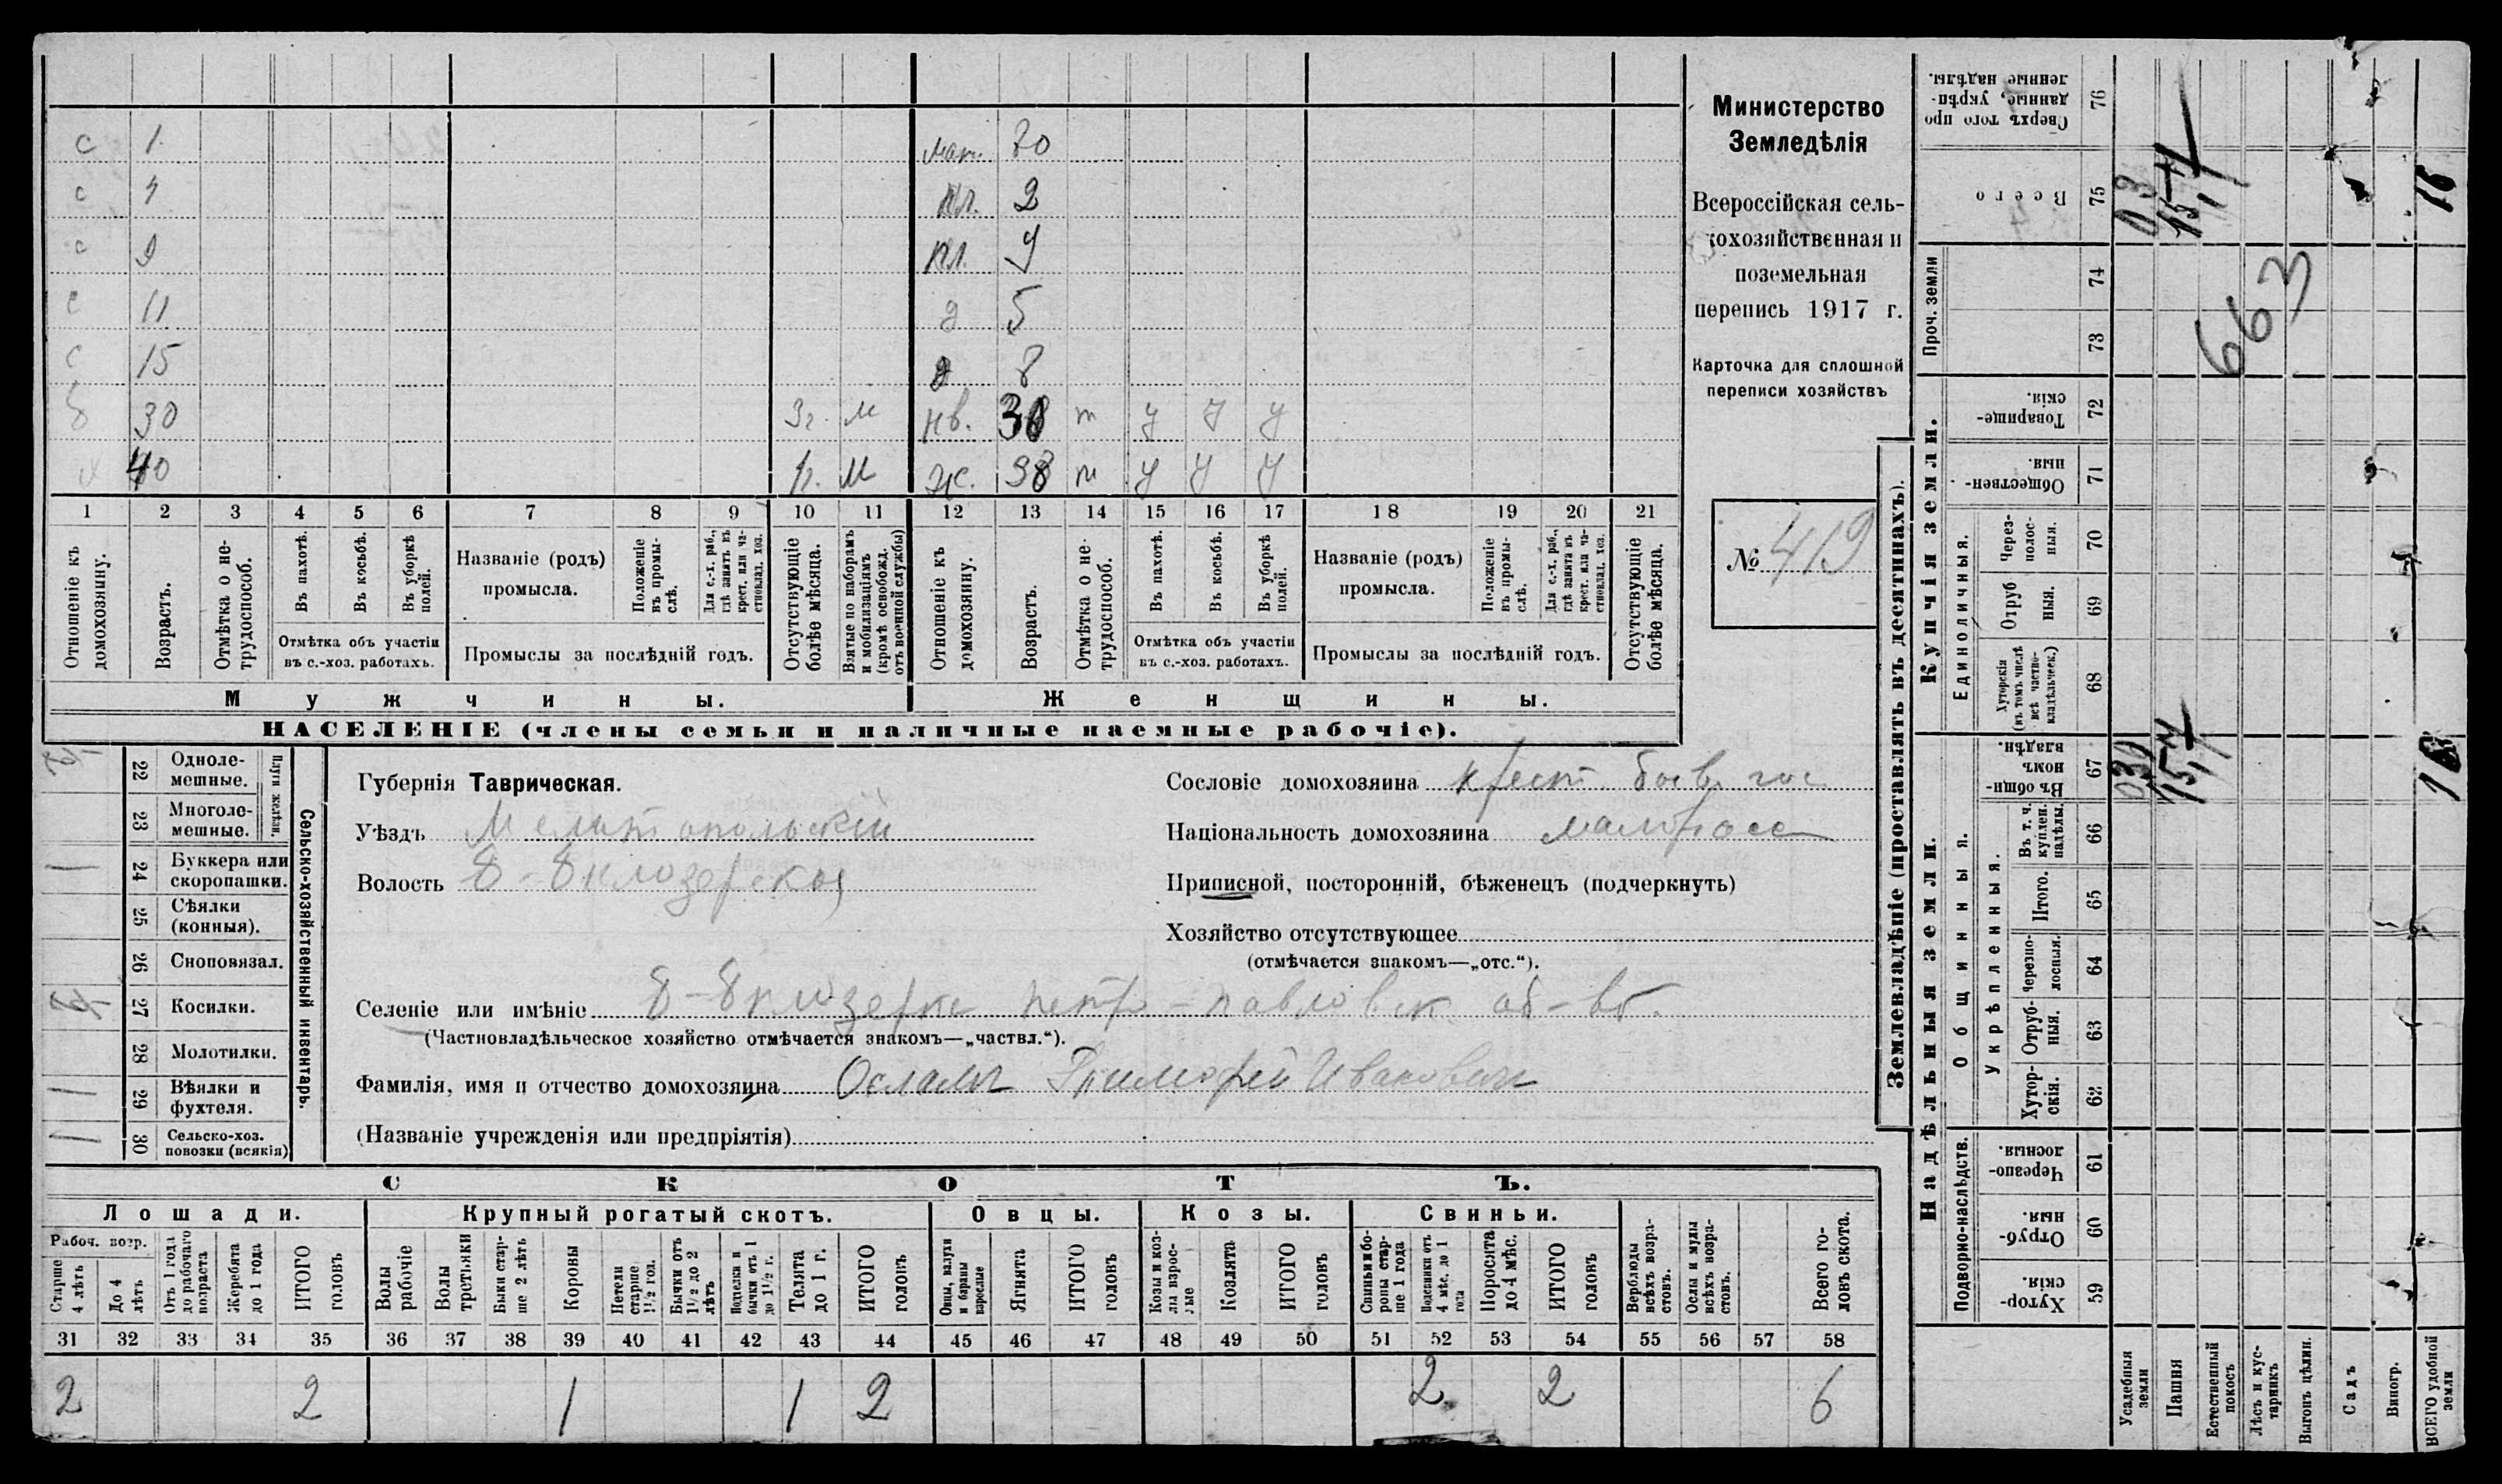 с 1. мат. 70
с 4 пл. 2
с 9 пл. 4
с 11 д 5
с 15 д 8
б 30 3г. м нв. 30 т у у у
х 40 1г. м ж. 38 т у у у
1 2 3 4 5 6 7 8 9 10 11 12 13 14 15 16 17 18 19 20 21
Отношеніе къ домохозяину.
Возрастъ.
Отмѣтка о не-трудоспособ.
Въ пахотѣ.
Въ косьбѣ.
Въ уборкѣ полей.
Отмѣтка объ участіи
въ с.-хоз. работахъ.
Названіе (родъ)
промысла.
Положеніе въ промы-слѣ.
Для с.-х. раб., гдѣ занятъ въ крест. или ча-стновлад. хоз.
Промыслы за послѣдній годъ.
Отсутствующіе болѣе мѣсяца.
Взятые по наборамъ и мобилизаціямъ (кромѣ освобожд. отъ военной службы)
Отношеніе къ домохозяину.
Возрастъ.
Отмѣтка о не-трудоспособ.
Въ пахотѣ.
Въ косьбѣ.
Въ уборкѣ полей.
Отмѣтка объ участіи
въ с.-хоз. работахъ.
Названіе (родъ)
промысла.
Положеніе въ промы-слѣ.
Для с.-х. раб., гдѣ занята въ крест. или ча-стновлад. хоз.
Промыслы за послѣдній годъ.
Отсутствующіе болѣе мѣсяца.
Мужчины. Женщины.
НАСЕЛЕНІЕ (члены семьи и наличные наемные рабочіе).
Министерство
Земледѣлія
Всероссійская сель-
скохозяйственная и
поземельная
перепись 1917 г.
Карточка для сплошной
переписи хозяйствъ
№ 419
22 Одноле-мешные.
23 Многоле-мешные.
Плуги желѣзн.
24 Буккера или скоропашки.
25 Сѣялки (конныя).
26 Сноповязал.
27 Косилки.
28 Молотилки.
29 Вѣялки и фухтеля.
30 Сельско-хоз. повозки (всякія)
Сельско-хозяйственный инвентарь.
Губернія Таврическая.
Уѣздъ Мелитопольскій
Волость Б-Бклозерская
Сословіе домохозяина крест. бывш. гос.
Національность домохозяина малоросс
Приписной, посторонній, бѣженецъ (подчеркнуть)
Хозяйство отсутствующее
(отмѣчается знакомъ—„отс.“).
Селеніе или имѣніе Б-Бклозерка Петр-Павловск. об-во.
(Частновладѣльческое хозяйство отмѣчается знакомъ—„частвл.“).
Фамилія, имя и отчество домохозяина Ослам Тимофей Иванович
(Названіе учрежденія или предпріятія)
СКОТЪ.
Лошади. Крупный рогатый скотъ. Овцы. Козы. Свиньи.
Рабоч. возр.
Старше 4 лѣтъ
До 4 лѣтъ
Отъ 1 года до рабочаго возраста
Жеребята до 1 года
ИТОГО головъ
Волы рабочіе
Волы третьяки
Быки стар-ше 2 лѣтъ
Коровы
Нетели старше 1½ год.
Бычки отъ 1½ до 2 лѣтъ
Подтелки и бычки отъ 1 до 1½ г.
Телята до 1 г.
ИТОГО головъ
Овцы, валухи и бараны взрослые
Ягнята
ИТОГО головъ
Козы и коз-лы взрос-лые
Козлята
ИТОГО головъ
Свиньи и бо-ровы стар-ше 1 года
Подсвинки отъ 4 мѣс. до 1 года
Поросята до 4 мѣс.
ИТОГО головъ
Верблюды всѣхъ возра-стовъ.
Ослы и мулы всѣхъ возра-стовъ.
Всего го-ловъ скота.
31 32 33 34 35 36 37 38 39 40 41 42 43 44 45 46 47 48 49 50 51 52 53 54 55 56 57 58
2 2 1 1 2 2 2 6
Землевладѣніе (проставлять въ десятинахъ).
Надѣльныя земли. Купчія земли.
Проч. земли
Подворно-наслѣдств.
Общинныя.
Укрѣпленныя.
Единоличныя.
Хутор-скія. 59
Отруб-ныя. 60
Черезпо-лосныя. 61
Хутор-скія. 62
Отруб-ныя. 63
Черезпо-лосныя. 64
Итого. 65
Въ т. ч. куплен. надѣлы. 66
Въ общин-номъ владѣн. 67
Хуторскія (въ томъ числѣ всѣ частно-владѣльческ.) 68
Отруб ныя. 69
Через-полос-ныя. 70
Обществен-ныя. 71
Товарище-скія. 72
73
74
Всего 75
Сверхъ того про данные, укрѣп-ленные надѣлы. 76
Усадебныя земли
Пашня
Естественный покосъ
Лѣсъ и кус-тарникъ
Выгонъ цѣлин.
Садъ
Виногр.
ВСЕГО удобной земли
663
16